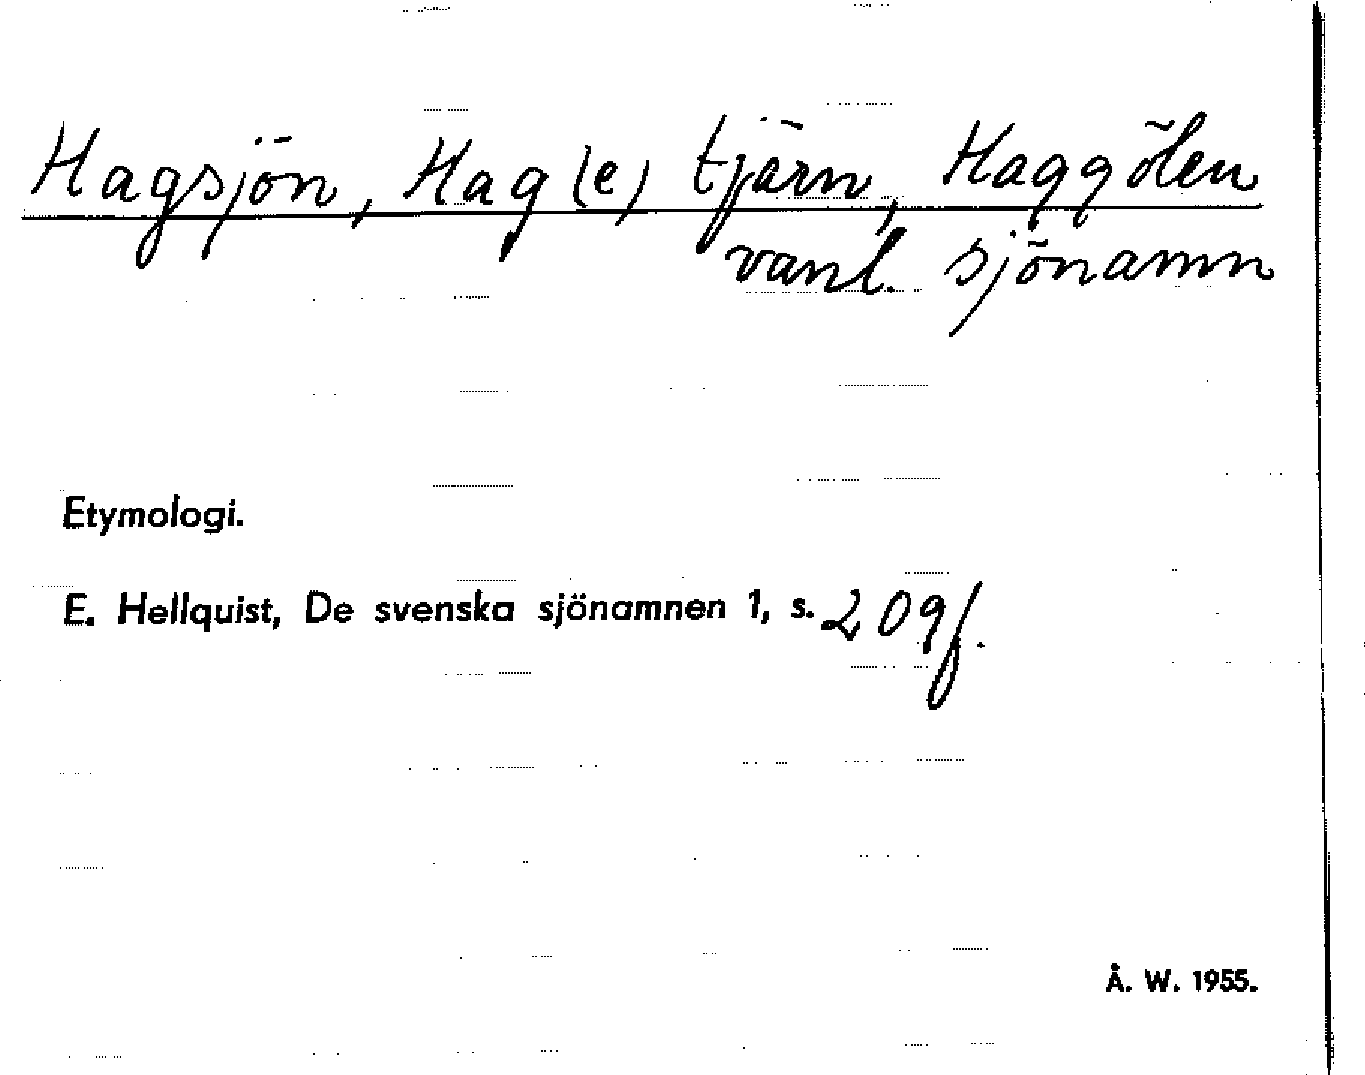 Hagsjön, Hag(e)tjärn, Haggölen
vanl. sjönamn
Etymologi.
E. Hellquist, De svenska sjönamnen 1, s. 209 f.
Å. W. 1955.